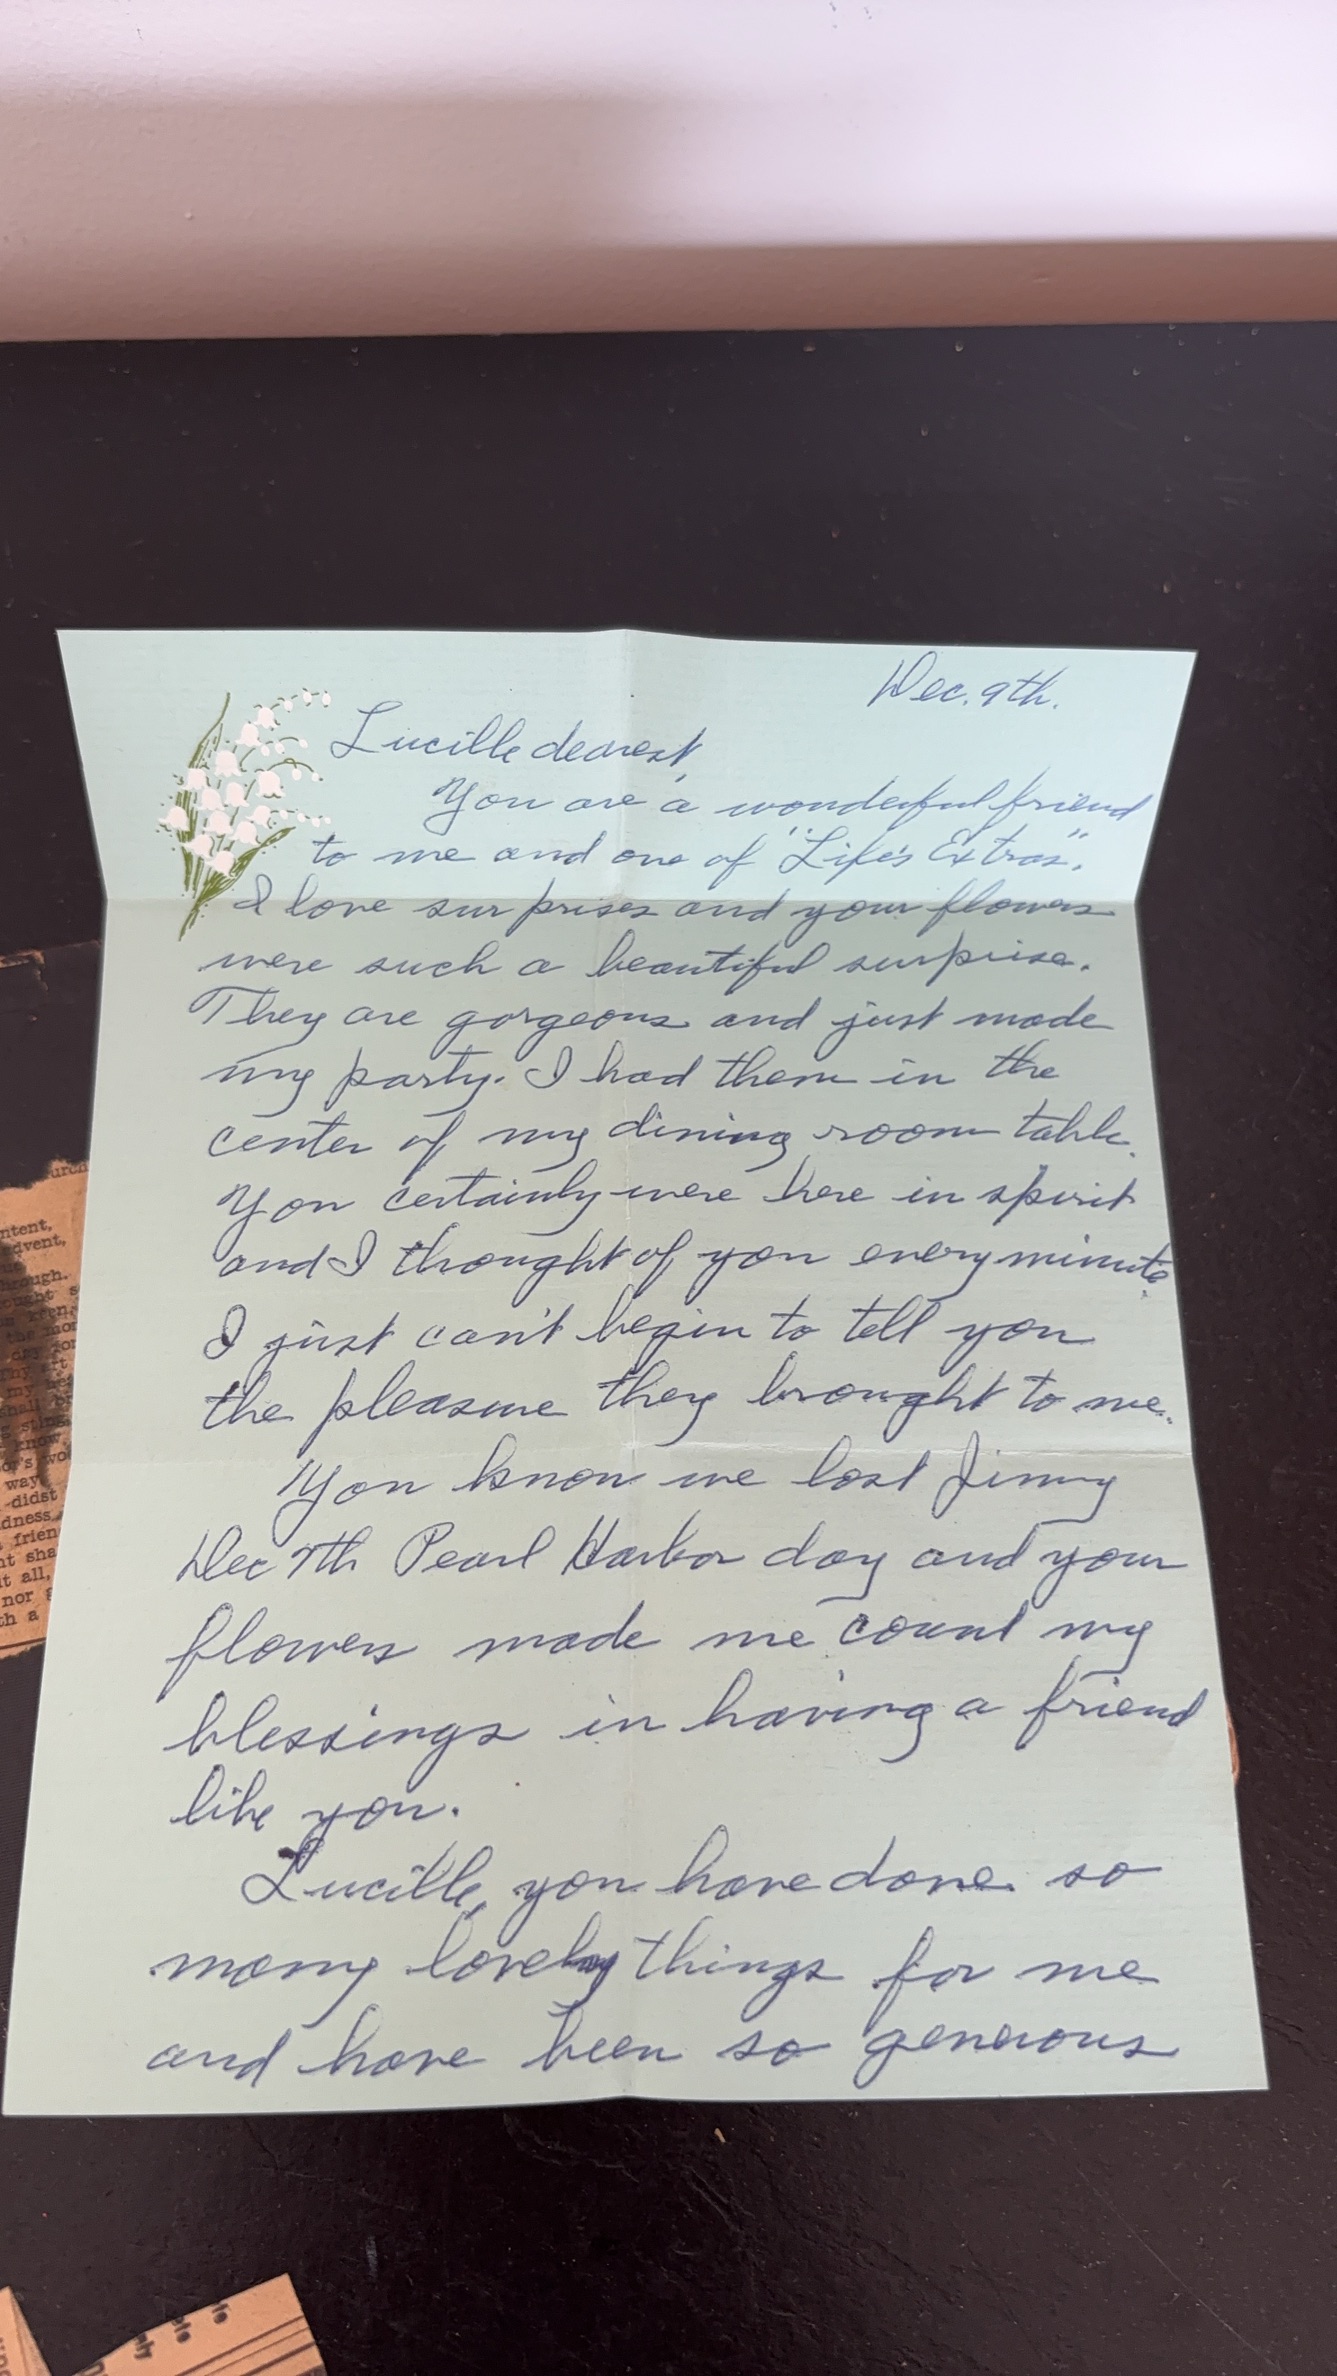 Dec. 9th.
Lucille dearest,
You are a wonderful friend
to me and one of "Life's Extras".
I love surprises and your flowers
were such a beautiful surprise.
They are gorgeous and just made
my party. I had them in the
center of my dining room table.
You certainly were here in spirit
and I thought of you every minute.
I just can't begin to tell you
the pleasure they brought to me.
You know we lost Jimmy
Dec 7th Pearl Harbor day and your
flowers made me count my
blessings in having a friend
like you.
Lucille, you have done so
many lovely things for me
and have been so generous
ntent,
dvent,
hrough.
ought s
the mor
my
shall
know
or's wo
way
didst
dness
frien
nt sha
it all,
nor
th a